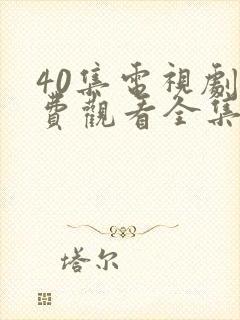 40集電視劇
費觀看全集
塔尔